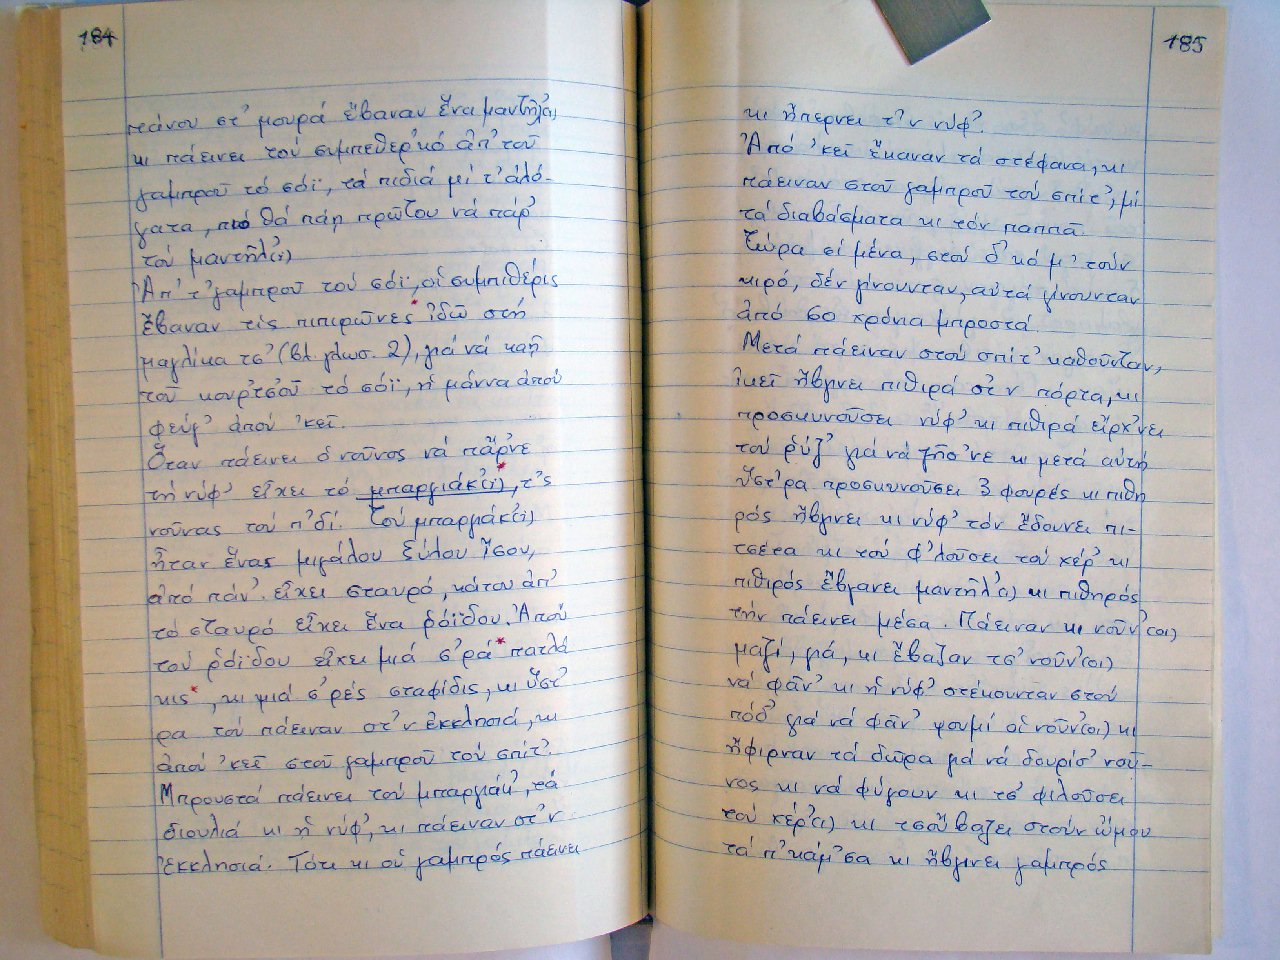 184
πάνου στ' μουρά ἔβαναν ἕνα μαντήλ(ι)
κι πάεινει τού συμπεθερ'κό ἀπ' τοῦ
γαμπροῦ τό σόϊ, τά πιδιά μί τ' ἀλό-
γατα, πιό θά πάη πρῶτου νά πάρ'
τού μαντῆλ(ι)
Ἀπ' τ' γαμπροῦ τού σόϊ, οἱ συμπιθέρις
ἔβαναν τίς πιπιρῶνες* ἰδῶ στή
μαγλίκα τσ' (βλ. γλωσ. 2), γιά νά καῆ
τοῦ κουρ'τσοῦ τό σόϊ, ἡ μάννα ἀπού
φεύγ' ἀπού 'κεῖ.
Ὅταν πάεινει ὁ νοῦνος νά πάρ'νε
τή νύφ' εἶχει τό μπαργιάκ(ι)*, τ'ς
νοῦνας τού π'δί. Τού μπαργιάκ(ι)
ἦταν ἕνας μιγάλου ξύλου ἴσου,
ἀπό πάν'. εἶχει σταυρό, κάτου ἀπ'
τό σταυρό εἶχει ἕνα ρόϊδου. Ἀπού
τού ρόϊδου εἶχει μιά σ'ρά* πατλά
κις*, κι μιά σ'ρές σταφίδις, κι ὕστ'
ρα τού πάειναν στ'ν ἐκκλησιά, κι
ἀπού 'κεῖ στοῦ γαμπροῦ τού σπίτ'.
Μπρουστά πάεινει τού μπαργιάκ', τά
διουλιά κι ἡ νύφ', κι πάειναν στ'ν
ἐκκλησιά. Τότι κι οὑ γαμπρός πάεινει
185
κι ἤπερνει τ'ν νύφ'.
Ἀπό 'κεῖ ἔκαναν τά στέφανα, κι
πάειναν στοῦ γαμπροῦ τού σπίτ', μί
τά διαβάσματα κι τόν παππᾶ.
Τώρα σί μένα, στού δ'κό μ' τούν
κιρό, δέν γίνουνταν, αὐτά γίνουνταν
ἀπό 60 χρόνια μπροστά.
Μετά πάειναν στού σπίτ' καθοῦνταν,
ἰκεῖ ἤβγινει πιθιρά σ'ν πόρτα, κι
προσκυνοῦσει νύφ' κι πιθιρά εἴρχ'νει
τού ρύζ' γιά νά ζήσ'νε κι μετά αὐτή
ὕστ'ρα προσκυνοῦσει 3 φουρές κι πιθη
ρός ἤβγινει κι νύφ' τόν ἔδουνει πι-
τσέτα κι τού φ'λοῦσει τού χέρ' κι
πιθιρός ἔβγανει μαντῆλ'(ι) κι πιθηρός
τήν πάεινει μέσα. Πάειναν κι νοῦν'(οι)
μαζί, γιά, κι ἔβαζαν τσ' νοῦν'(οι)
νά φᾶν' κι ἡ νύφ' στέκουνταν στού
πόδ' γιά νά φᾶν' ψουμί οἱ νοῦν'(οι) κι
ἤφιρναν τά δῶρα γιά νά δουρίσ' νοῦ-
νος κι νά φύγουν κι τσ' φιλοῦσει
τού χέρ'(ι) κι τσοῦ βαζει στούν ὦμου
τά π'κάμ'σα κι ἤβγινει γαμπρός